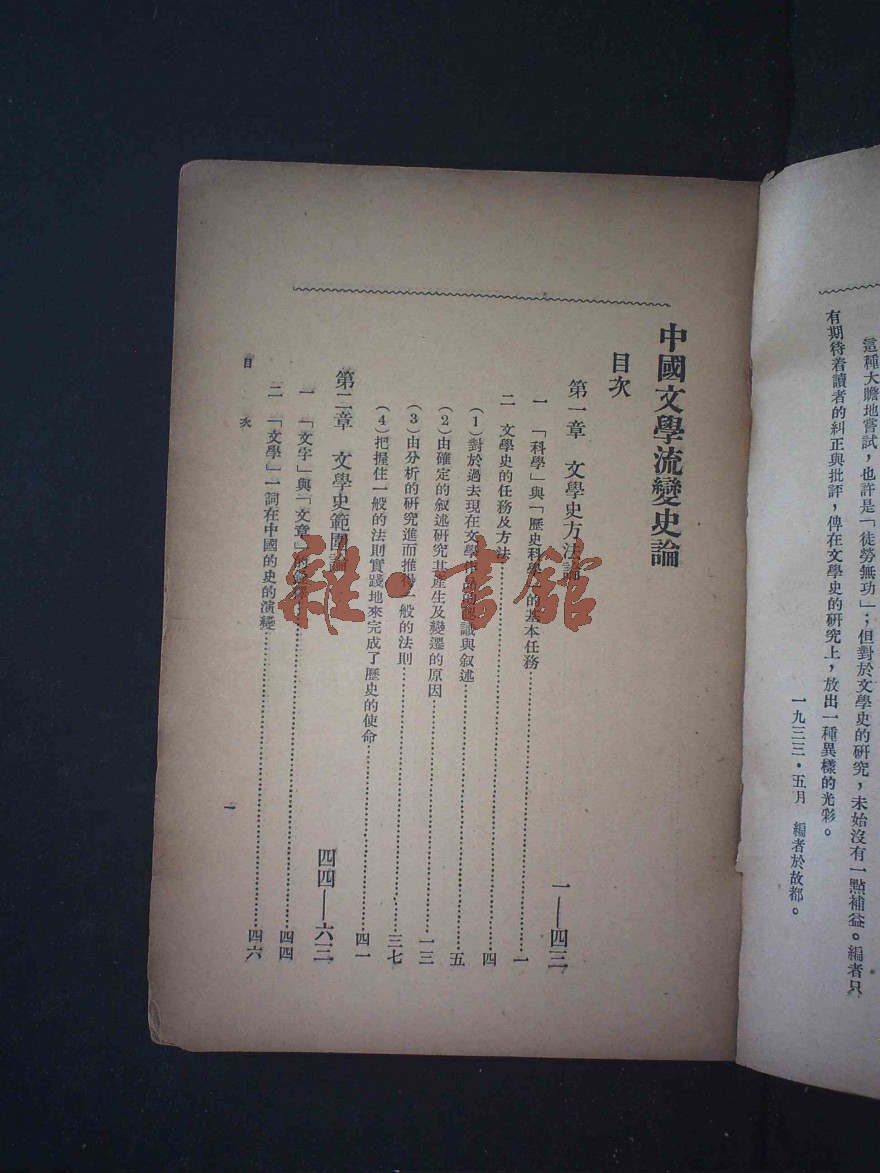 這種大膽地嘗試，也許是「徒勞無功」；但對於文學史的研究，未始沒有一點補益。編者只
有期待着讀者的糾正與批評，俾在文學史的研究上，放出一種異樣的光彩。
一九三三・五月　編者於故都。
中國文學流變史論
目次
第一章　文學史方法論　一——四三
一　「科學」與「歷史科學」的基本任務……一
二　文學史的任務及方法……四
（1）對於過去現在文學作品的認識與叙述……五
（2）由確定的叙述研究其產生及變遷的原因……一三
（3）由分析的研究進而推得一般的法則……三七
（4）把握住一般的法則實踐地來完成了歷史的使命……四一
第二章　文學史範圍論　四四——六三
一　「文字」與「文章」的……四四
二　「文學」一詞在中國的史的演變……四六
目次
一
雜・書館